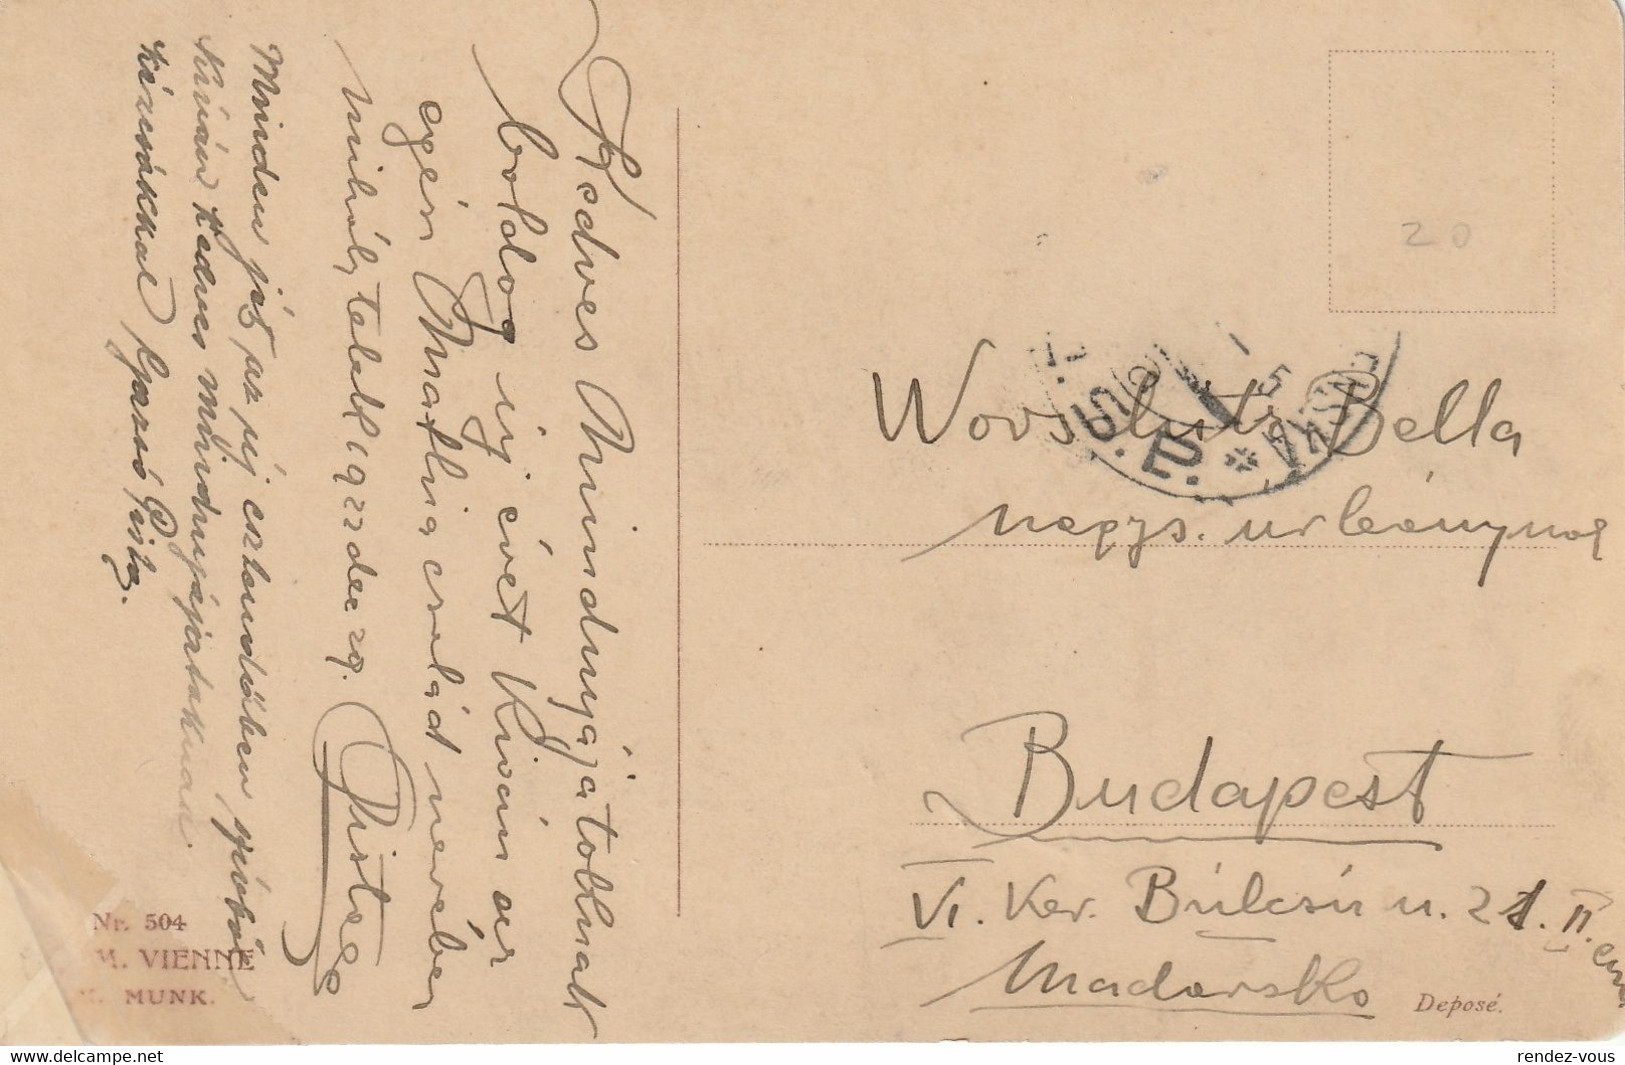 Kedves Mindnyájatoknak
boldog új évet kíván az
egész Mathia család nevében
Mihály telek 1922 dec 29. Pista
Minden jót az új esztendőben
kíván kedves mindnyájatoknak
kézcsókkal Pista.
20
Bella
nagys. urleánynak
Budapest
VI. Ker. Bulcsú u. 21. II. em
Madarsko
Nr. 504
M. VIENNE
M. MUNK.
Deposé.
rendez-vous